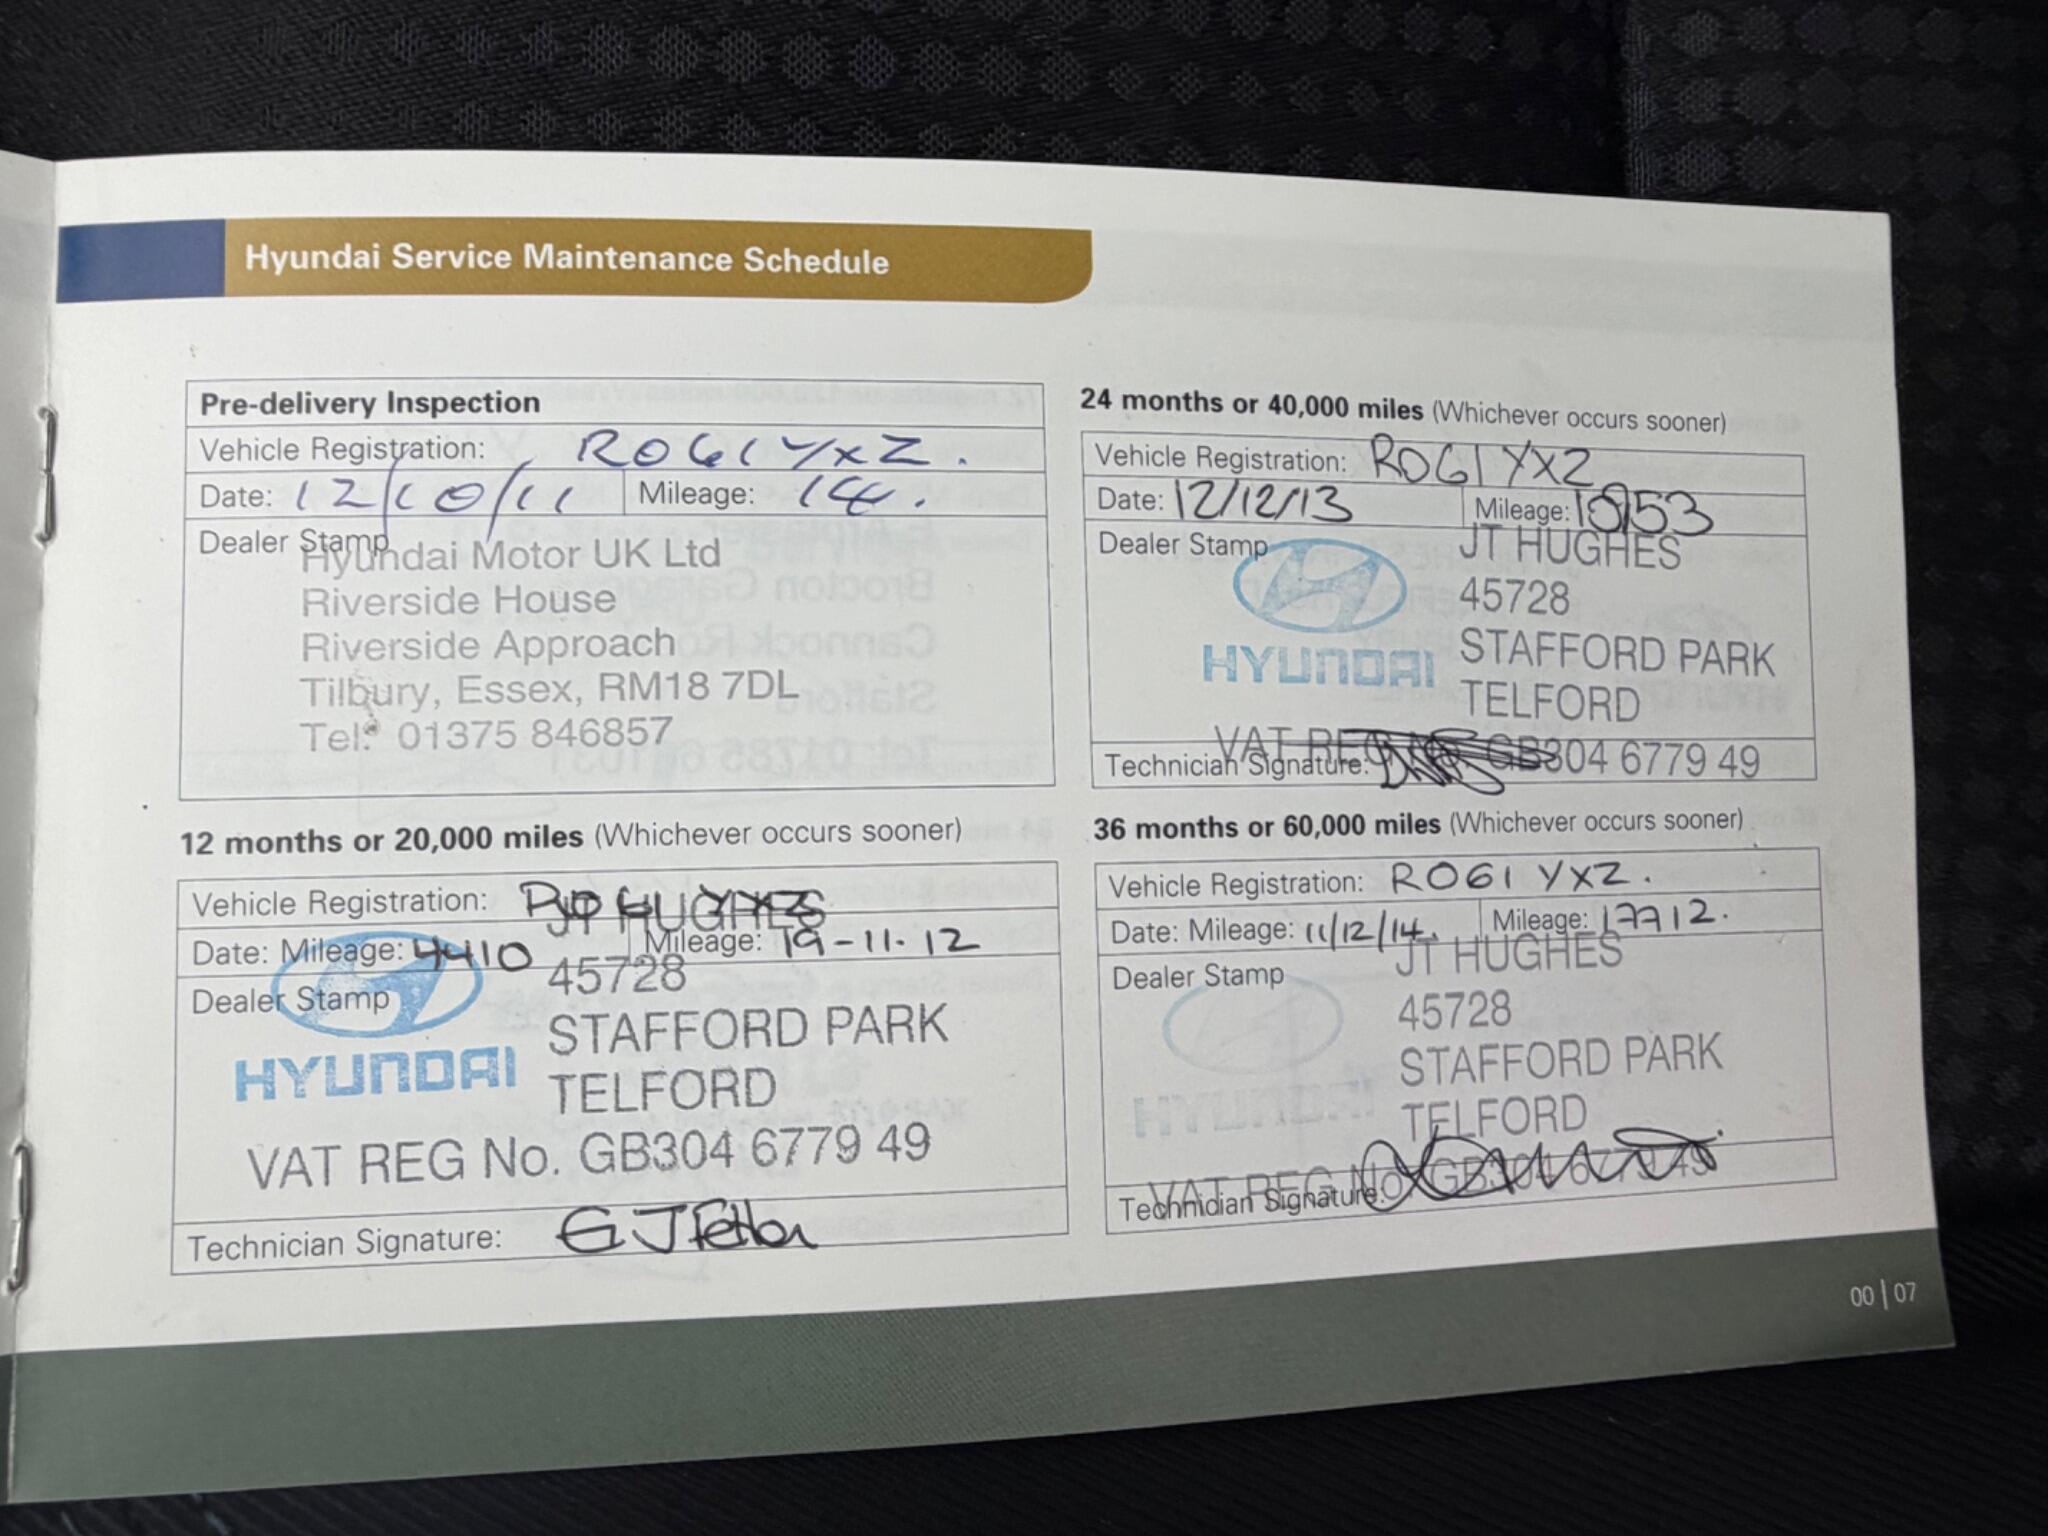 Hyundai Service Maintenance Schedule
Pre-delivery Inspection
Vehicle Registration: RO61 YXZ.
Date: 12/10/11 Mileage: 14.
Dealer Stamp
Hyundai Motor UK Ltd
Riverside House
Riverside Approach
Tilbury, Essex, RM18 7DL
Tel: 01375 846857
12 months or 20,000 miles (Whichever occurs sooner)
Vehicle Registration: RO61 YXZ
JT HUGHES
Date: Mileage: 4410 Mileage: 19-11-12
45728
Dealer Stamp
STAFFORD PARK
HYUNDAI
TELFORD
VAT REG No. GB304 6779 49
Technician Signature:
24 months or 40,000 miles (Whichever occurs sooner)
Vehicle Registration: RO61 YXZ
Date: 12/12/13 Mileage:
Dealer Stamp
JT HUGHES
45728
HYUNDAI
STAFFORD PARK
TELFORD
VAT REG No. GB304 6779 49
Technician Signature:
36 months or 60,000 miles (Whichever occurs sooner)
Vehicle Registration: RO61 YXZ.
Date: Mileage: 11/12/14. Mileage: 17712.
JT HUGHES
Dealer Stamp
45728
STAFFORD PARK
HYUNDAI
TELFORD
VAT REG No. GB304 6779 49
Technician Signature:
00 | 07